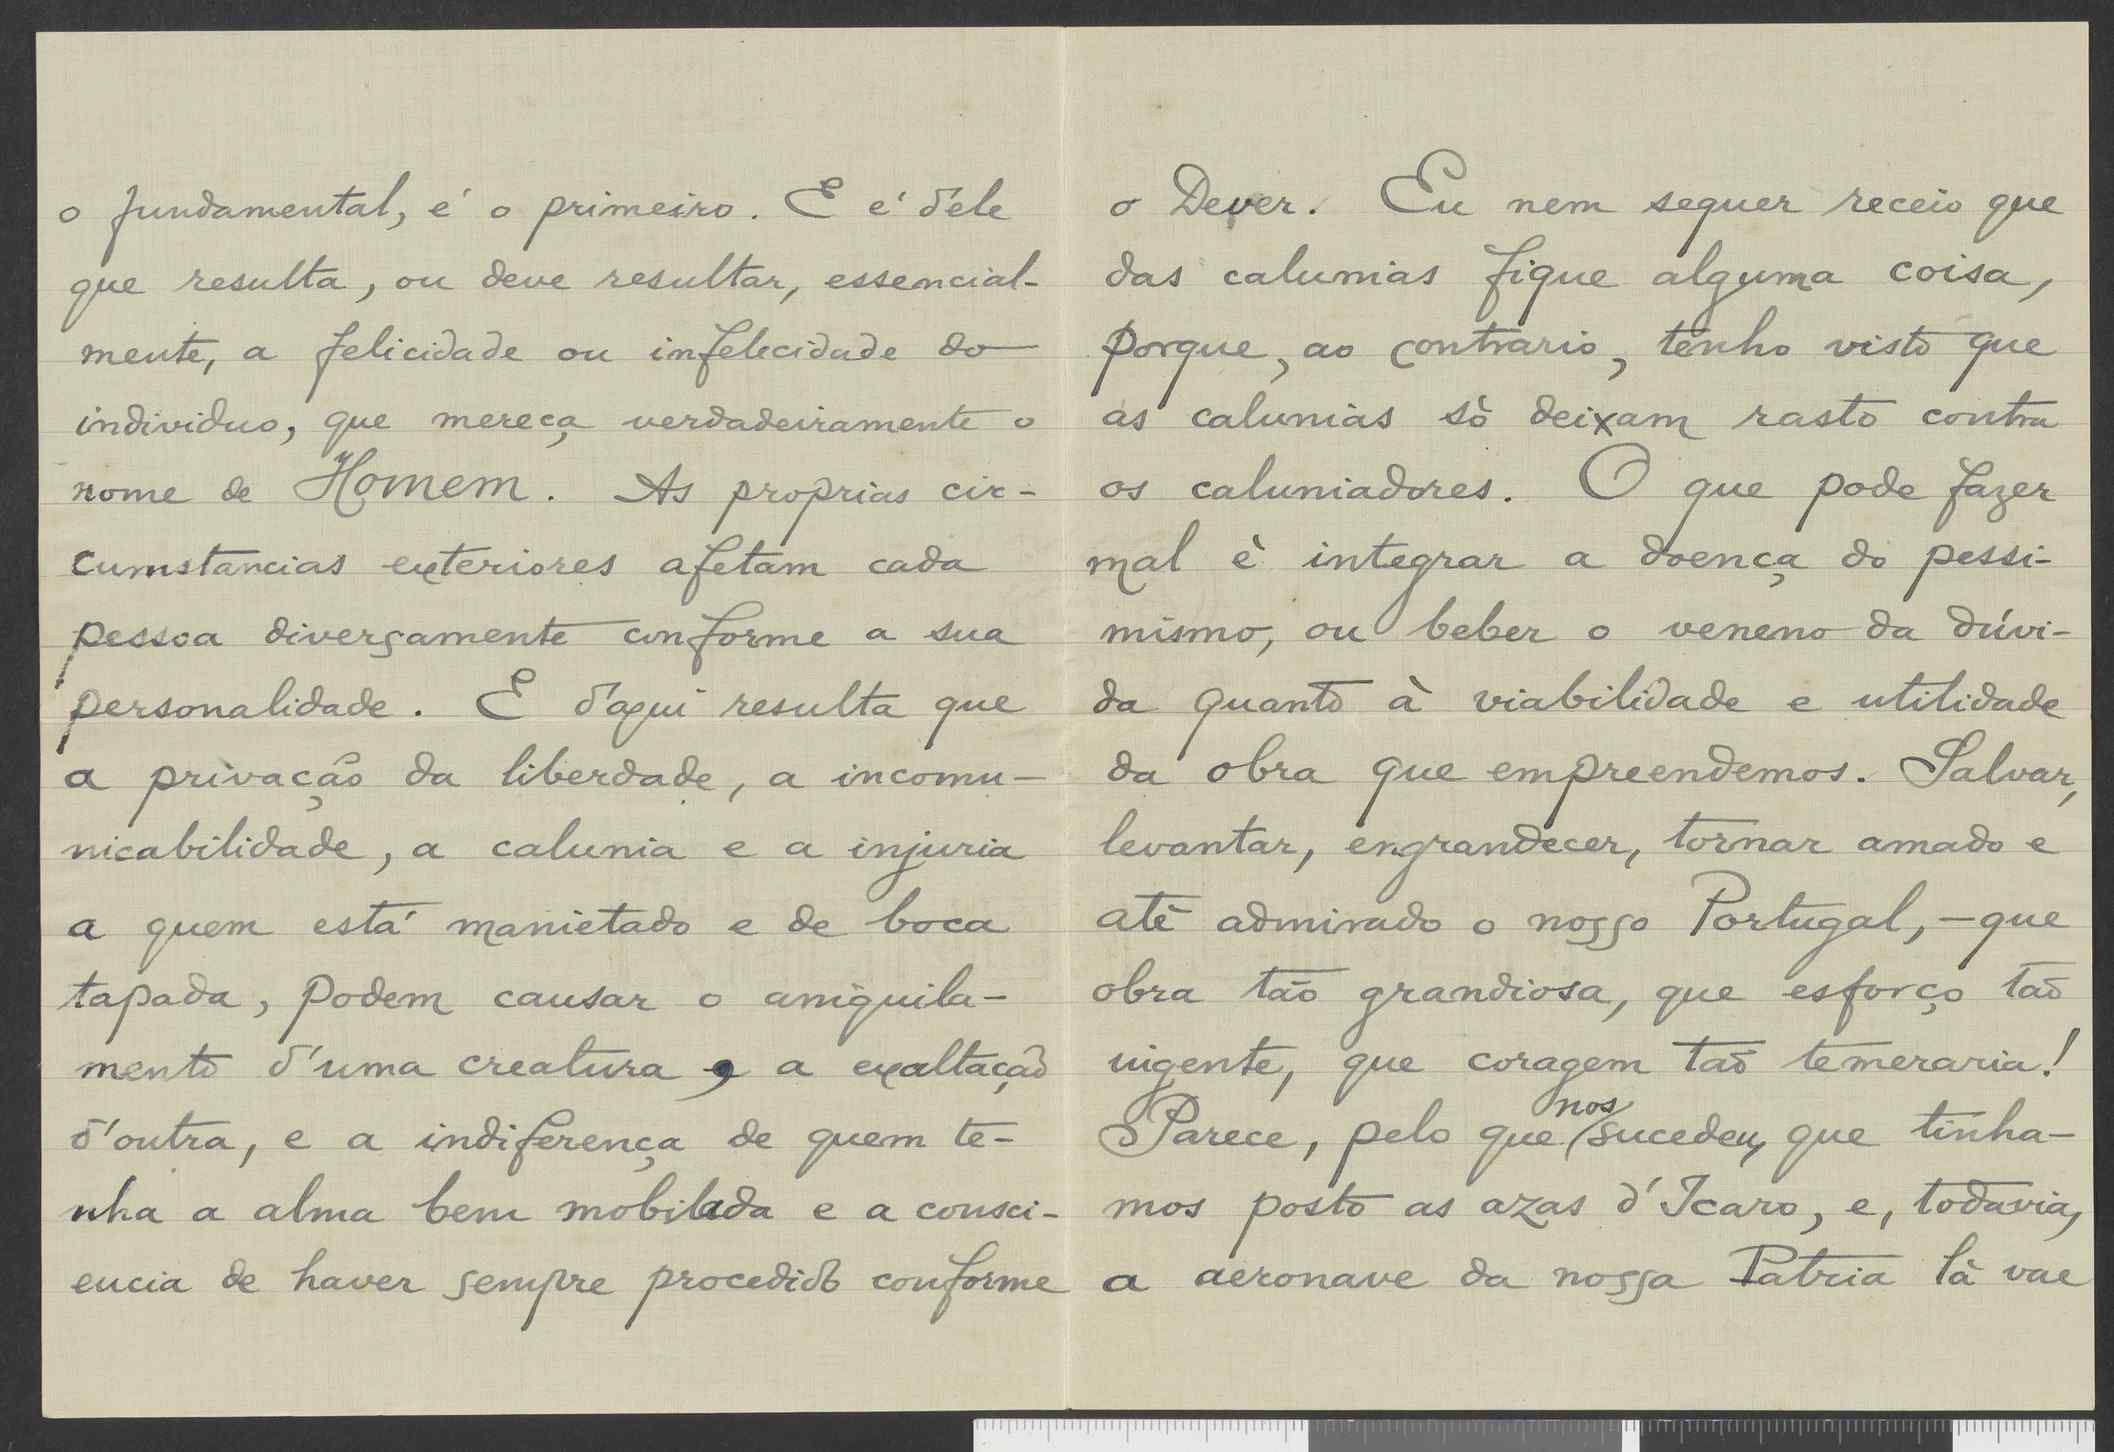 o fundamental, é o primeiro. E é d'ele
que resulta, ou deve resultar, essencial-
mente, a felicidade ou infelecidade do
individuo, que mereça verdadeiramente o
nome de Homem. As proprias cir-
cumstancias exteriores afetam cada
pessoa diversamente conforme a sua
personalidade. E d'aqui resulta que
a privação da liberdade, a incomu-
nicabilidade, a calunia e a injuria
a quem está manietado e de boca
tapada, podem causar o aniquila-
mento d'uma creatura, a exaltação
d'outra, e a indiferença de quem te-
nha a alma bem mobilada e a consci-
encia de haver sempre procedido conforme
o Dever. Eu nem sequer receio que
das calumias fique alguma coisa,
porque, ao contrario, tenho visto que
as calunias sò deixam rasto contra
os caluniadores. O que pode fazer
mal è integrar a doença do pessi-
mismo, ou beber o veneno da dúvi-
da quanto à viabilidade e utilidade
da obra que empreendemos. Salvar,
levantar, engrandecer, tornar amado e
atè admirado o nosso Portugal, - que
obra tão grandiosa, que esforço tão
uigente, que coragem tão temeraria!
Parece, pelo que nos sucedeu, que tinha-
mos posto as azas d'Icaro, e, todavia,
a aeronave da nossa Patria là vae